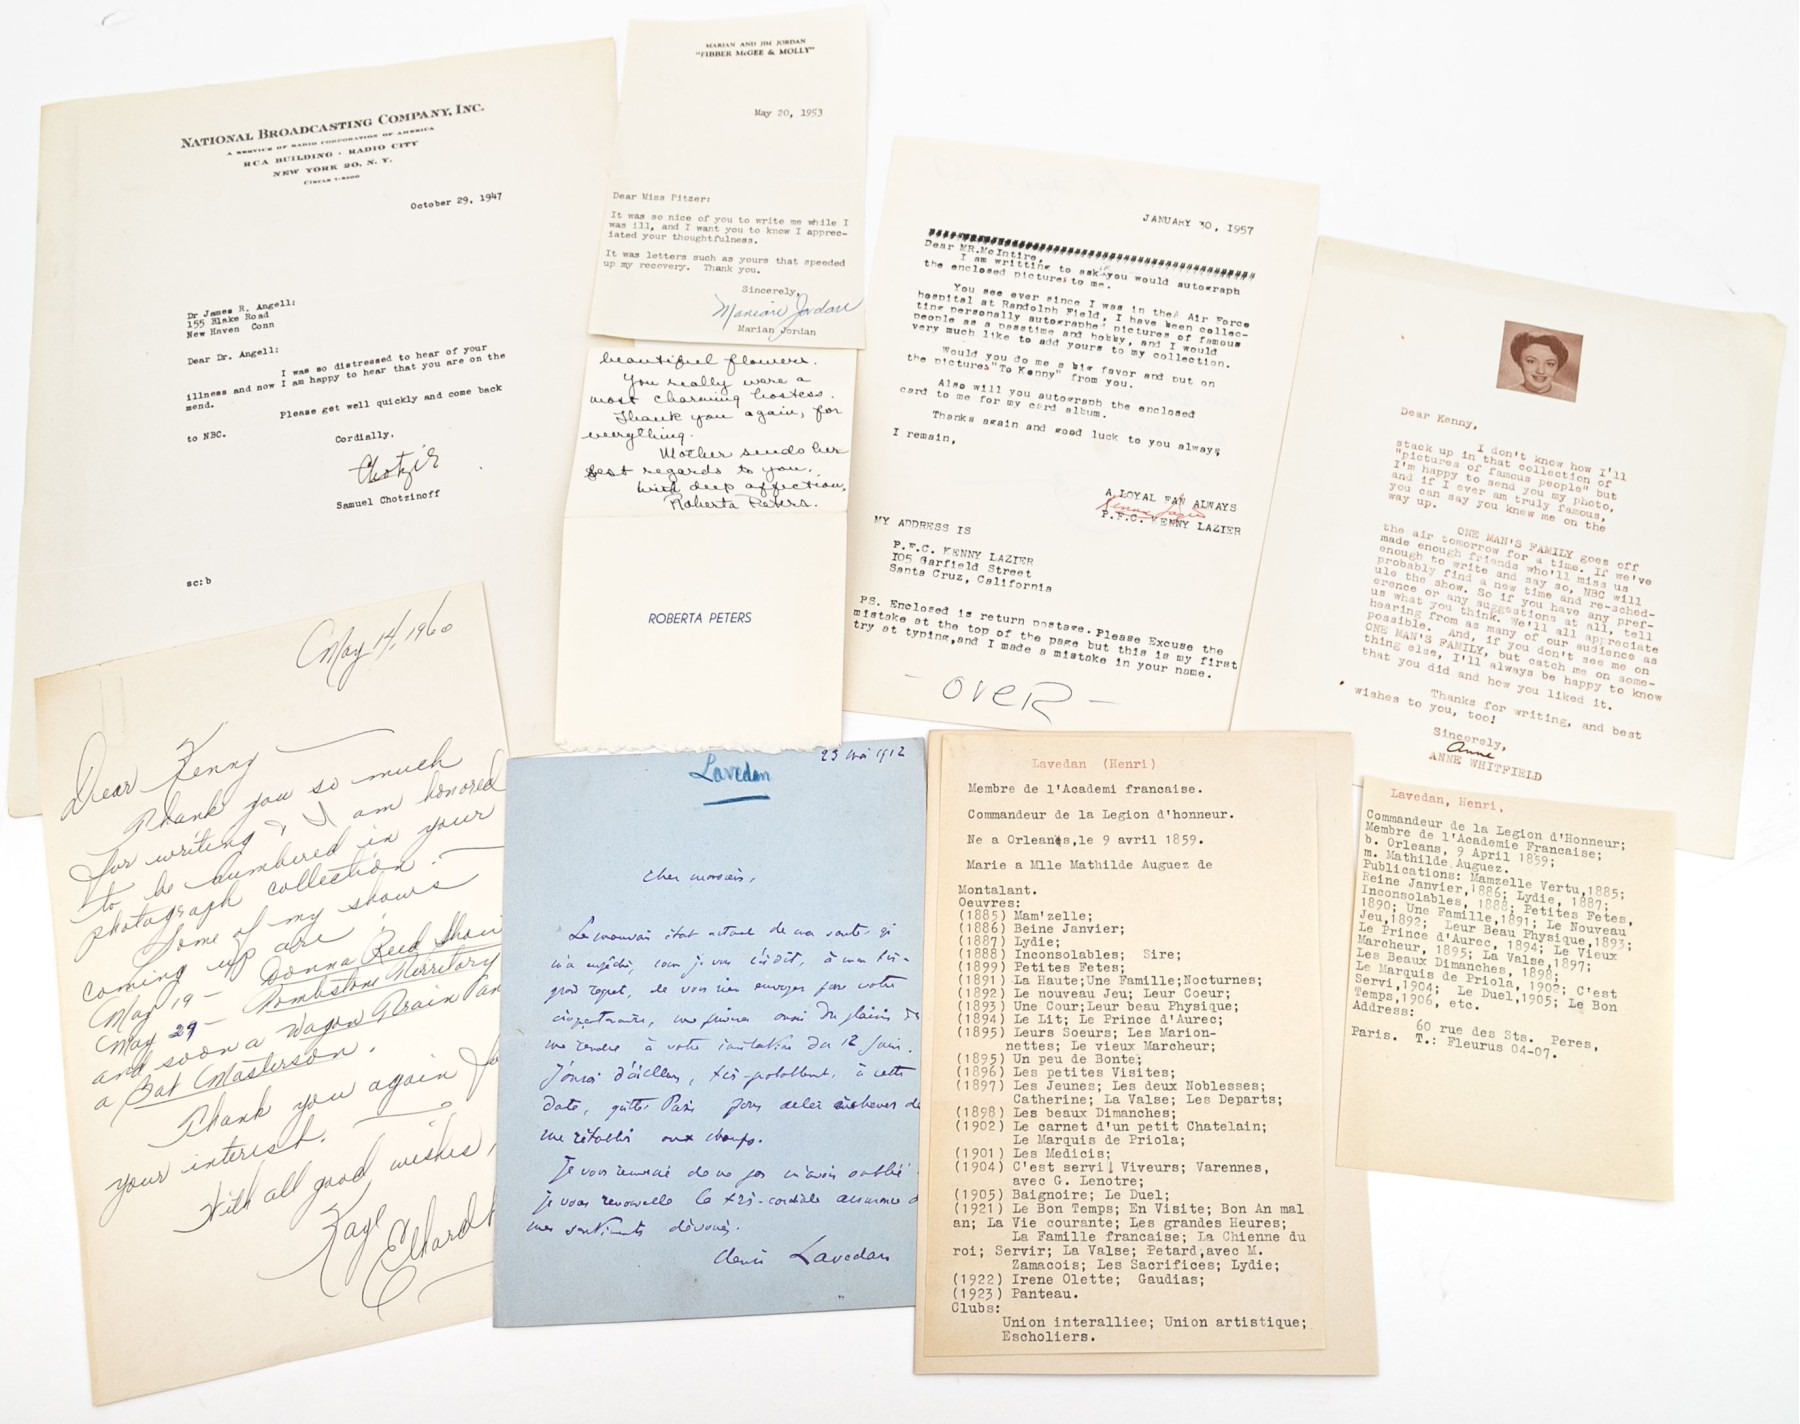 NATIONAL BROADCASTING COMPANY, INC.
A SERVICE OF RADIO CORPORATION OF AMERICA
RCA BUILDING · RADIO CITY
NEW YORK 20, N. Y.
October 29, 1947
Dr James R. Angell;
155 Blake Road
New Haven Conn
Dear Dr. Angell:
I was so distressed to hear of your
illness and now I am happy to hear that you are on the
mend.
Please get well quickly and come back
to NBC.
Cordially,
Chotzie
Samuel Chotzinoff
sc:b
MARIAN AND JIM JORDAN
"FIBBER McGEE & MOLLY"
May 20, 1953
Dear Miss Pitzer:
It was so nice of you to write me while I
was ill, and I want you to know I apprec-
iated your thoughtfulness.
It was letters such as yours that speeded
up my recovery. Thank you.
Sincerely,
Marian Jordan
Marian Jordan
beautiful flowers.
You really were a
most charming hostess.
Thank you again, for
everything.
Mother sends her
best regards to you.
With deep affection,
Roberta Peters.
ROBERTA PETERS
JANUARY 30, 1957
Dear MR.McIntire,
I am writting to ask you would autograph
the enclosed pictures to me.
You see ever since I was in the Air Force
hospital at Randolph Field, I have been collec-
ting personally autographe' pictures of famous
people as a passtime and hobby, and I would
very much like to add yours to my collection.
Would you do me a big favor and put on
the pictures "To Kenny" from you.
Also will you autograph the enclosed
card to me for my card album.
Thanks again and good luck to you always,
I remain,
A LOYAL FAN ALWAYS
Kenny Lazier
P.F.C. KENNY LAZIER
MY ADDRESS IS
P.F.C. KENNY LAZIER
105 Garfield Street
Santa Cruz, California
PS. Enclosed is return postage. Please Excuse the
mistake at the top of the page but this is my first
try at typing,and I made a mistake in your name.
- OVER -
Dear Kenny,
I don't know how I'll
stack up in that collection of
"pictures of famous people" but
I'm happy to send you my photo,
and if I ever am truly famous,
you can say you knew me on the
way up.
ONE MAN'S FAMILY goes off
the air tomorrow for a time. If we've
made enough friends who'll miss us
enough to write and say so, NBC will
probably find a new time and re-sched-
ule the show. So if you have any pref-
erence or any suggestions at all, tell
us what you think. We'll all appreciate
hearing from as many of our audience as
possible. And, if you don't see me on
ONE MAN'S FAMILY, but catch me on some-
thing else, I'll always be happy to know
that you did and how you liked it.
Thanks for writing, and best
wishes to you, too!
Sincerely,
Anne
ANNE WHITFIELD
May 14, 1960
Dear Kenny
Thank you so much
for writing & I am honored
to be numbered in your
photograph collection.
Some of my shows
coming up are
May 19 - Donna Reed Show
May 29 - Tombstone Territory
and soon a Wagon Train an
a Bat Masterson.
Thank you again for
your interest.
With all good wishes,
Kaye Elhardt
23 mai 1912
Lavedan
Cher monsieur,
Le mauvais état actuel de ma santé qi
m'a empêché, comme je vous l'ai dit, à mon très-
grand regret, de vous rien envoyer pour votre
cinquantenaire, me privera aussi du plaisir de
me rendre à votre invitation du 12 juin.
J'aurai d'ailleurs, très-probablement, à cette
date, quitté Paris pour aller achever de
me rétablir aux champs.
Je vous remercie de ne pas m'avoir oublié
je vous renouvelle la très-cordiale assurance d
mes sentiments dévoués.
Henri Lavedan
Lavedan (Henri)
Membre de l'Academi francaise.
Commandeur de la Legion d'honneur.
Ne a Orleans,le 9 avril 1859.
Marie a Mlle Mathilde Auguez de
Montalant.
Oeuvres:
(1885) Mam'zelle;
(1886) Beine Janvier;
(1887) Lydie;
(1888) Inconsolables; Sire;
(1899) Petites Fetes;
(1891) La Haute;Une Famille;Nocturnes;
(1892) Le nouveau Jeu; Leur Coeur;
(1893) Une Cour;Leur beau Physique;
(1894) Le Lit; Le Prince d'Aurec;
(1895) Leurs Soeurs; Les Marion-
nettes; Le vieux Marcheur;
(1895) Un peu de Bonte;
(1896) Les petites Visites;
(1897) Les Jeunes; Les deux Noblesses;
Catherine; La Valse; Les Departs;
(1898) Les beaux Dimanches;
(1902) Le carnet d'un petit Chatelain;
Le Marquis de Priola;
(1901) Les Medicis;
(1904) C'est servi; Viveurs; Varennes,
avec G. Lenotre;
(1905) Baignoire; Le Duel;
(1921) Le Bon Temps; En Visite; Bon An mal
an; La Vie courante; Les grandes Heures;
La Famille francaise; La Chienne du
roi; Servir; La Valse; Petard,avec M.
Zamacois; Les Sacrifices; Lydie;
(1922) Irene Olette; Gaudias;
(1923) Panteau.
Clubs:
Union interalliee; Union artistique;
Escholiers.
Lavedan, Henri.
Commandeur de la Legion d'Honneur;
Membre de l'Academie Francaise;
b. Orleans, 9 April 1859;
m. Mathilde Auguez.
Publications: Mamzelle Vertu,1885;
Reine Janvier,1886; Lydie, 1887;
Inconsolables, 1888; Petites Fetes,
1890; Une Famille,1891; Le Nouveau
Jeu,1892; Leur Beau Physique,1893;
Le Prince d'Aurec, 1894; Le Vieux
Marcheur, 1895; La Valse,1897;
Les Beaux Dimanches, 1898;
Le Marquis de Priola, 1902; C'est
Servi,1904; Le Duel,1905; Le Bon
Temps,1906, etc.
Address:
60 rue des Sts. Peres,
Paris. T.: Fleurus 04-07.